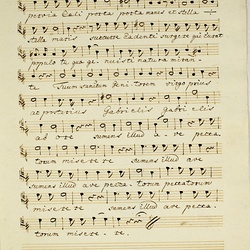 pervia Caeli porta porta manes et stella
stella maris succurre cadenti surgere qui curat
populo tu quae genuisti natura miran-
te tuum sanctum Genitorem virgo prius
ac posterius Gabrielis Gabrielis
ab ore sumens illud ave pecca-
torum miserere sumens illud ave
sumens illud ave peccatorum peccatorum
miserere sumens illud ave pecca-
torum miserere.